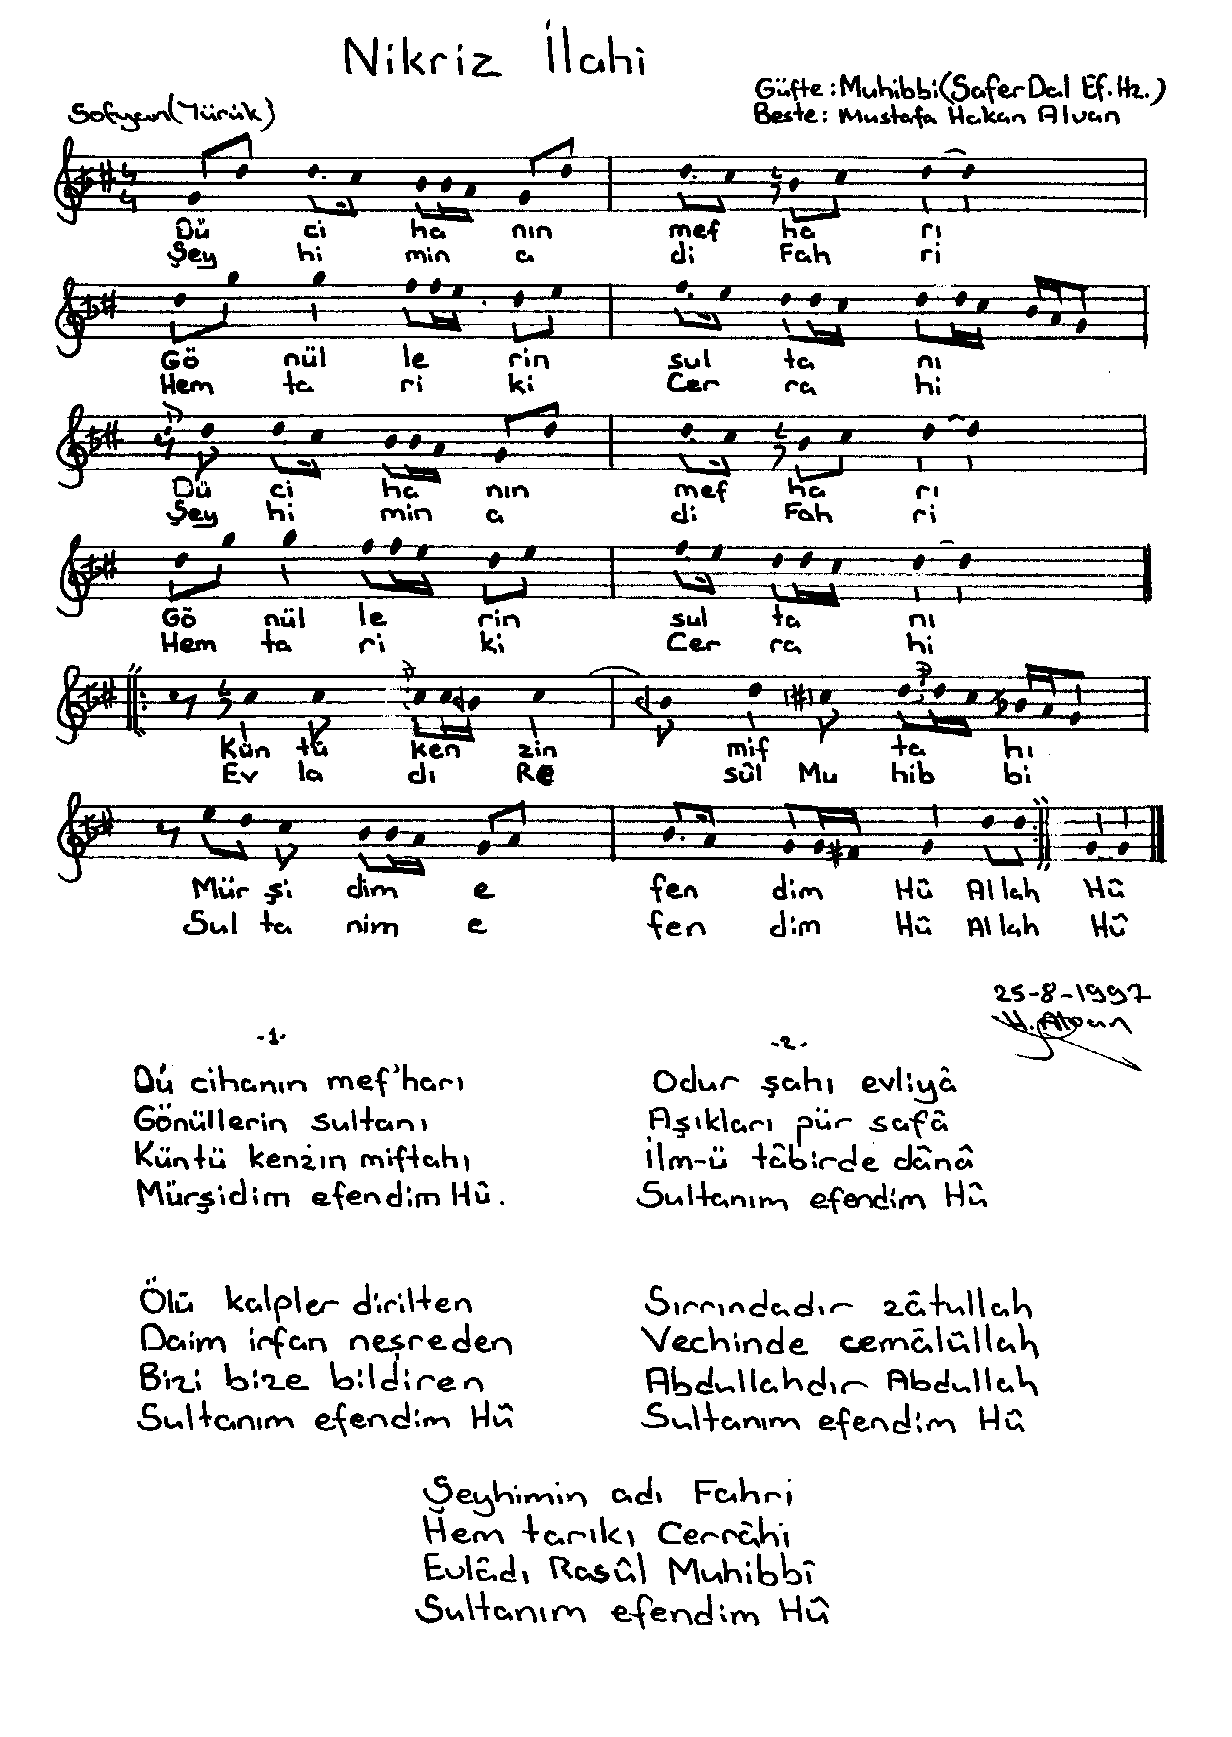 Nikriz İlahi
Güfte: Muhibbi (Safer Dal Ef. Hz.)
Sofyan (Yürük)
Beste: Mustafa Hakan Alvan
Dü ci ha nın mef ha rı
Şey hi min a di Fah ri
Gö nül le rin sul ta nı
Hem ta ri ki Cer ra hi
Dü ci ha nın mef ha rı
Şey hi min a di Fah ri
Gö nül le rin sul ta nı
Hem ta ri ki Cer ra hi
Kün tü ken zin mif ta hı
Ev la dı Re sûl Mu hib bi
Mür şi dim e fen dim Hû Al lah Hû
Sul ta nim e fen dim Hû Al lah Hû
25-8-1997
H. Alvan
-1-
Dü cihanın mef'harı
Gönüllerin sultanı
Küntü kenzin miftahı
Mürşidim efendim Hû.
-2-
Odur şahı evliyâ
Aşıkları pür safâ
İlm-ü tâbirde dânâ
Sultanım efendim Hû
Ölü kalpler dirilten
Daim irfan neşreden
Bizi bize bildiren
Sultanım efendim Hû
Sırrındadır zâtullah
Vechinde cemâlûllah
Abdullahdır Abdullah
Sultanım efendim Hû
Şeyhimin adı Fahri
Hem tarıkı Cerrâhi
Evlâdı Rasûl Muhibbî
Sultanım efendim Hû